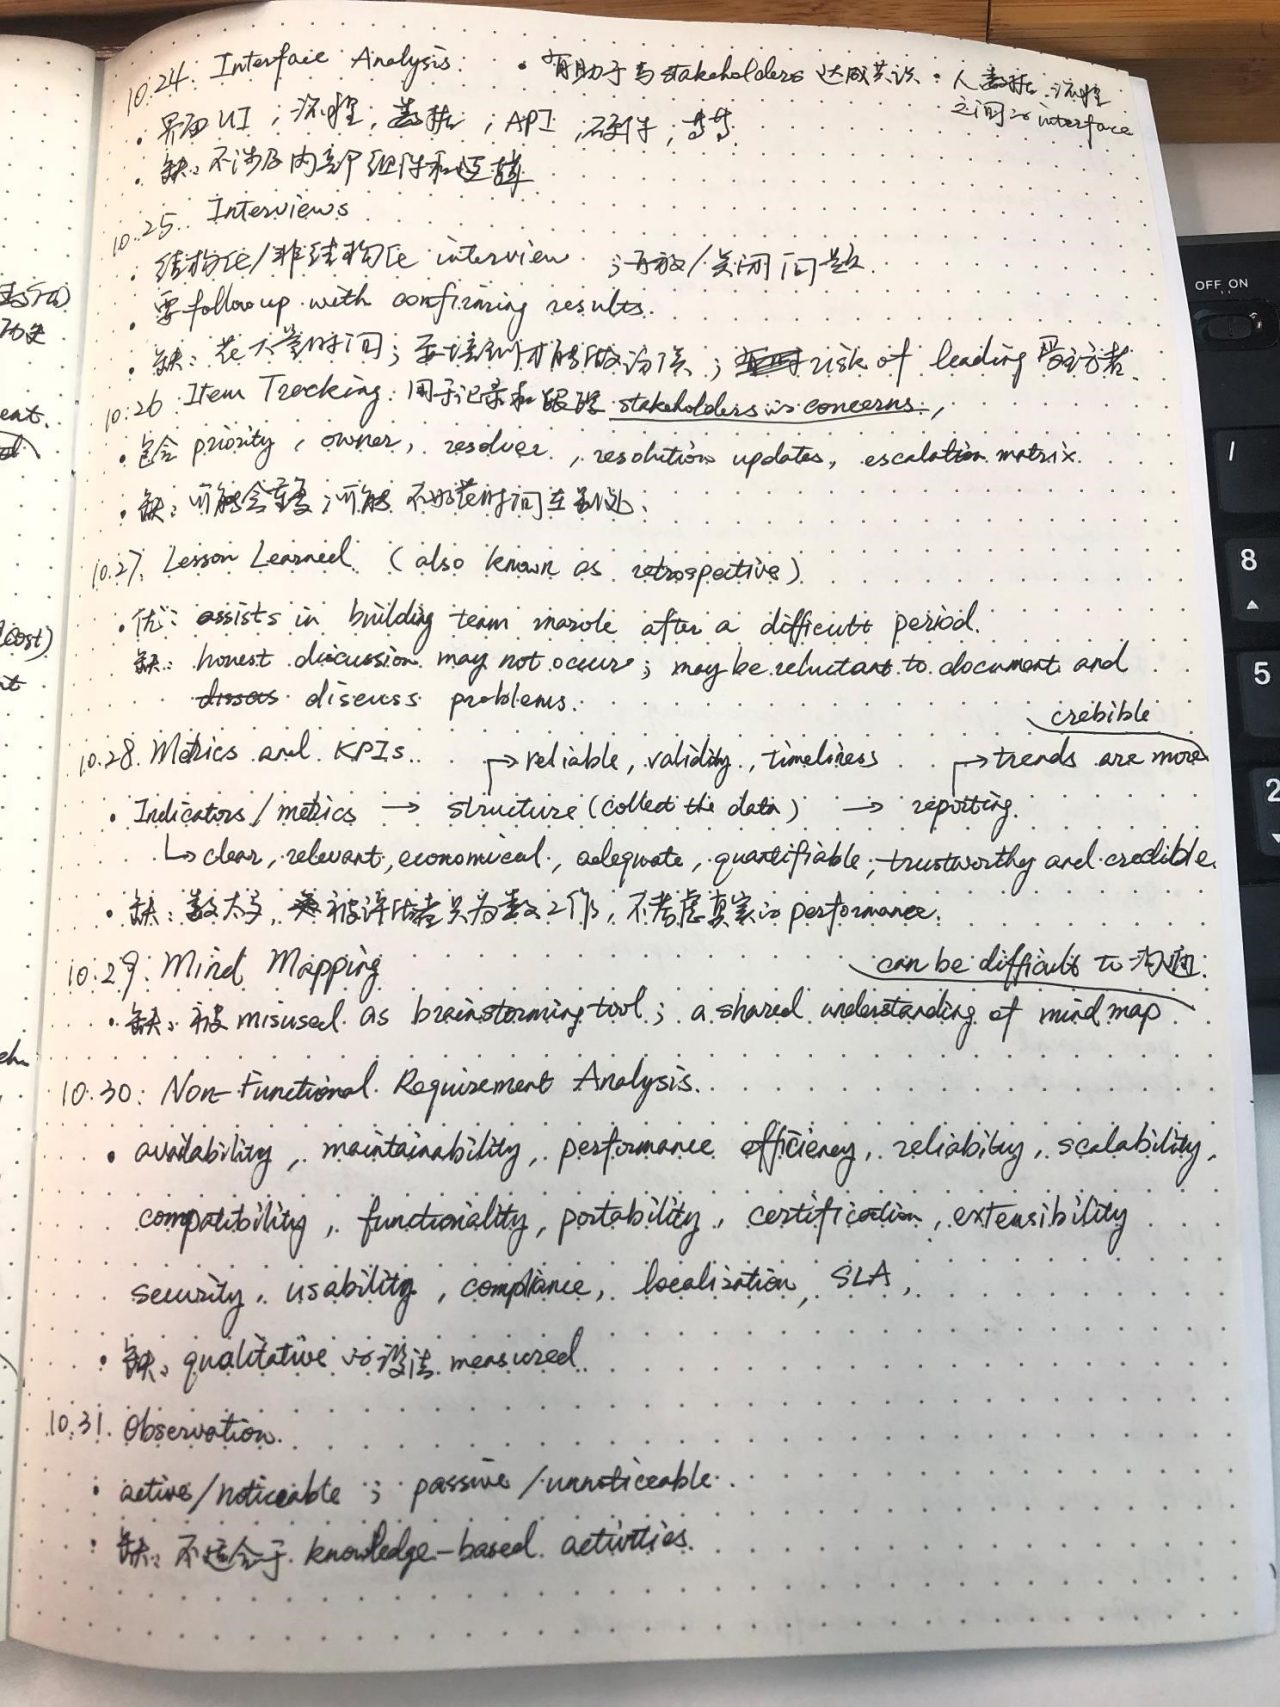 10.24. Interface Analysis. · 有助于与stakeholders 达成共识 · 人数据、流程
之间的interface
· 界面UI；流程；数据；API；硬件；等等
· 缺：不涉及内部组件和逻辑
10.25. Interviews
· 结构化/非结构化 interview；开放/关闭问题.
· 要followup with confirming results.
· 缺：花大量时间；要培训才能做访谈；risk of leading 受访者
10.26 Item Tracking: 用于记录和跟踪 stakeholders的concerns.,
· 包含 priority, owner, resolver, resolution updates, escalation matrix.
· 缺：可能会；可能不如花时间在别处.
10.27. Lesson Learned (also known as retrospective)
· 优: assists in building team marole after a difficult period.
缺: honest discussion may not occure; may be reluctant to document and
discuss problems.
crebible
10.28. Metrics and KPIs. → reliable, validity, timeliness → trends are more
· Indicators/metrics → structure (collect the data) → reporting.
↳ clear, relevant, economical, adequate, quantifiable, trustworthy and credible.
· 缺：数太多，被评估者只为数工作，不考虑真实的performance.
10.29. Mind Mapping can be difficult to 沟通.
· 缺: 被 misused as brainstorming tool; a shared understanding of mind map
10.30: Non-Functional Requirement Analysis.
· availability, maintainability, performance efficiency, reliability, scalability,
compatibility, functionality, portability, certification, extensibility
security, usability, compliance, localization, SLA,
· 缺: qualitative 的没法 measured.
10.31. Observation.
· active/noticeable; passive/unnoticeable.
· 缺: 不适合于 knowledge-based activities.
OFF ON
/
8
5
2
eat.
cost)